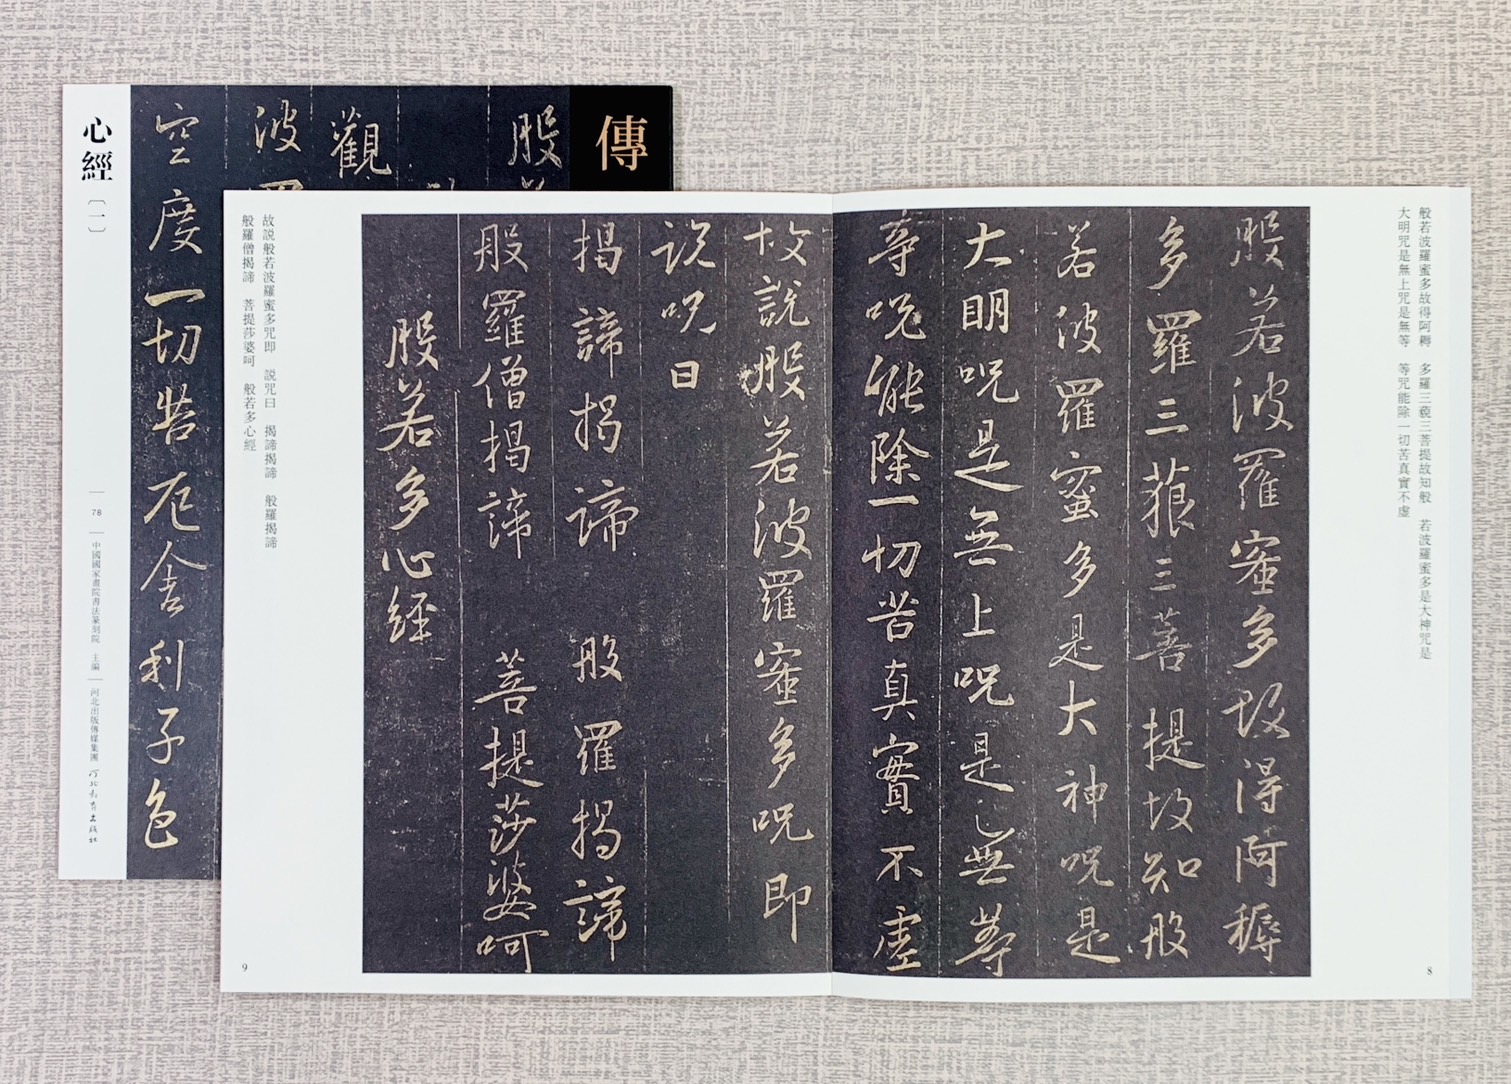 傳
般
觀
波羅
空度一切苦厄舍利子色
心經
〔一〕
78
中國國家畫院書法篆刻院 主編
河北出版傳媒集團
河北教育出版社
般若波羅蜜多故得阿耨 多羅三藐三菩提故知般 若波羅蜜多是大神咒是
大明咒是無上咒是無等 等咒能除一切苦真實不虛
般若波羅蜜多故得阿耨
多羅三藐三菩提故知般
若波羅蜜多是大神呪是
大明呪是無上呪是無等
等呪能除一切苦真實不虛
8
故說般若波羅蜜多呪即
說呪曰
揭諦揭諦 般羅揭諦
般羅僧揭諦 菩提莎婆呵
般若多心経
故説般若波羅蜜多咒即 説咒曰 揭諦揭諦 般羅揭諦
般羅僧揭諦 菩提莎婆呵 般若多心經
9